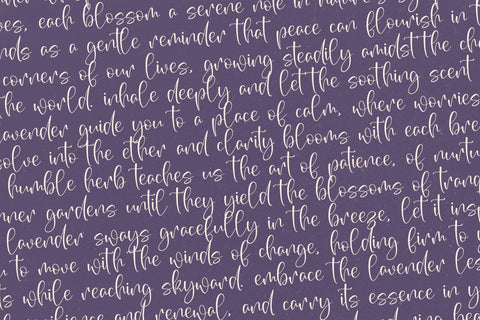 es, each blossom a serene note in
nds as a gentle reminder that peace can flourish in t
corners of our lives, growing steadily amidst the cha
the world. inhale deeply and let the soothing scent
lavender guide you to a place of calm, where worries
solve into the ether and clarity blooms with each bre
humble herb teaches us the art of patience, of nurtu
nner gardens until they yield the blossoms of tranq
lavender sways gracefully in the breeze, let it insp
u to move with the winds of change, holding firm to y
ts while reaching skyward. embrace the lavender les
silience and renewal, and carry its essence in y